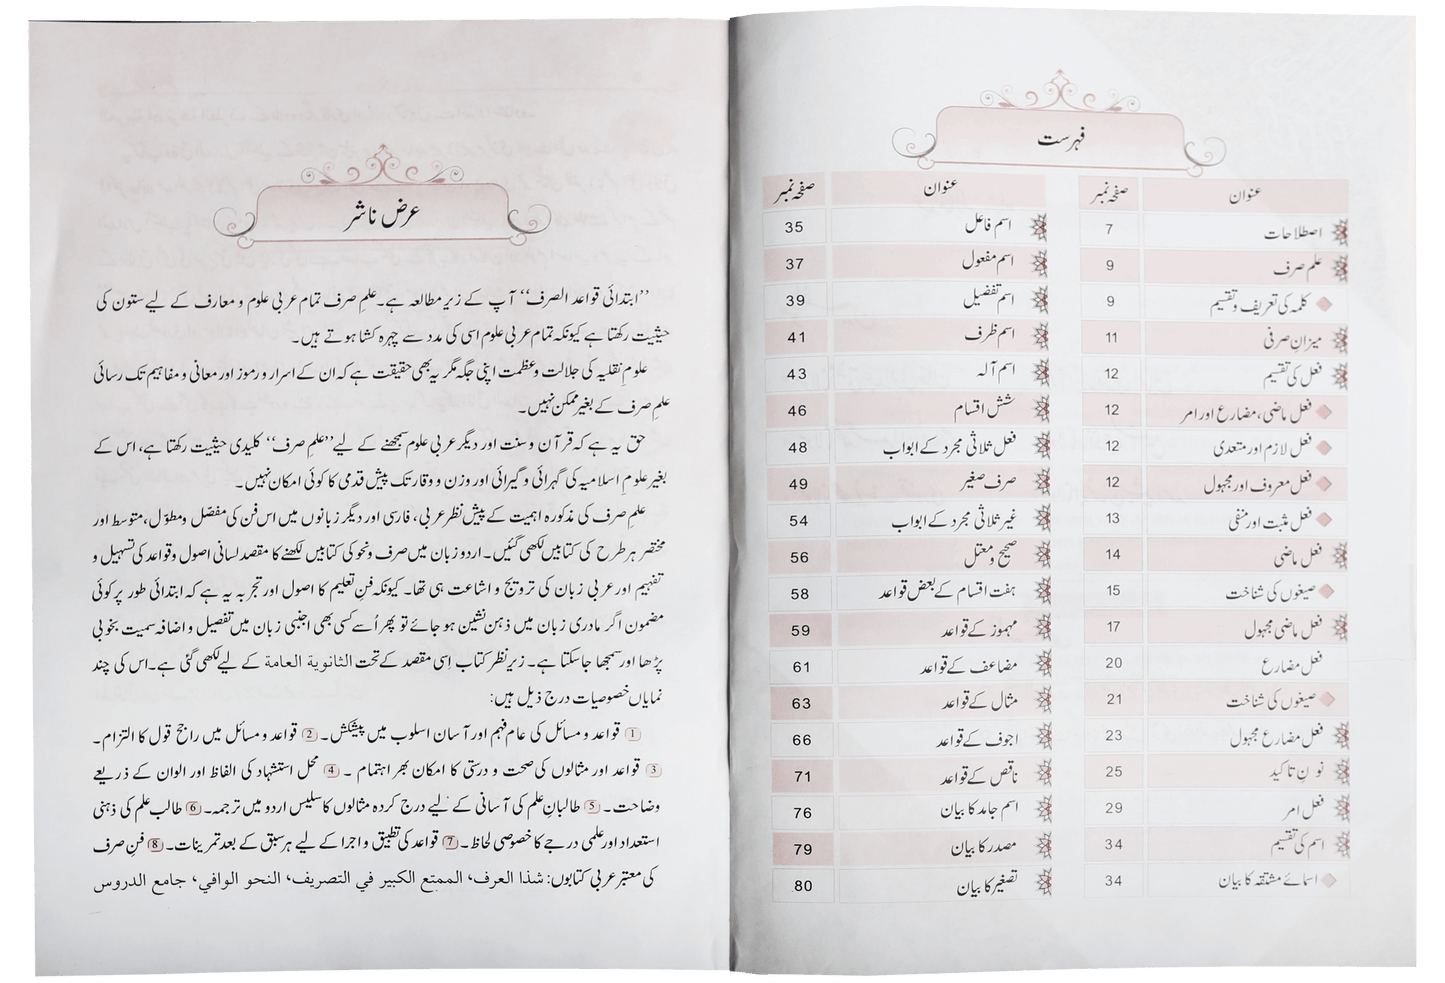 فہرست
عنوان صفحہ نمبر
اصطلاحات 7
علم صرف 9
کلمہ کی تعریف و تقسیم 9
میزانِ صرفی 11
فعل کی تقسیم 12
فعل ماضی، مضارع اور امر 12
فعل لازم اور متعدی 12
فعل معروف اور مجہول 12
فعل مثبت اور منفی 13
فعل ماضی 14
صیغوں کی شناخت 15
فعل ماضی مجہول 17
فعل مضارع 20
صیغوں کی شناخت 21
فعل مضارع مجہول 23
نونِ تاکید 25
فعل امر 29
اسم کی تقسیم 34
اسمائے مشتقہ کا بیان 34
عنوان صفحہ نمبر
اسم فاعل 35
اسم مفعول 37
اسم تفضیل 39
اسم ظرف 41
اسم آلہ 43
شش اقسام 46
فعل ثلاثی مجرد کے ابواب 48
صرف صغیر 49
غیر ثلاثی مجرد کے ابواب 54
صحیح و معتل 56
ہفت اقسام کے بعض قواعد 58
مہموز کے قواعد 59
مضاعف کے قواعد 61
مثال کے قواعد 63
اجوف کے قواعد 66
ناقص کے قواعد 71
اسم جامد کا بیان 76
مصدر کا بیان 79
تصغیر کا بیان 80
عرض ناشر
’’ابتدائی قواعد الصرف‘‘ آپ کے زیرِ مطالعہ ہے۔ علمِ صرف تمام عربی علوم و معارف کے لیے ستون کی
حیثیت رکھتا ہے کیونکہ تمام عربی علوم اسی کی مدد سے چہرہ کشا ہوتے ہیں۔
علومِ نقلیہ کی جلالت و عظمت اپنی جگہ مگر یہ بھی حقیقت ہے کہ ان کے اسرار و رموز اور معانی و مفاہیم تک رسائی
علمِ صرف کے بغیر ممکن نہیں۔
حق یہ ہے کہ قرآن و سنت اور دیگر عربی علوم سمجھنے کے لیے ’’علمِ صرف‘‘ کلیدی حیثیت رکھتا ہے، اس کے
بغیر علومِ اسلامیہ کی گہرائی و گیرائی اور وزن و وقار تک پیش قدمی کا کوئی امکان نہیں۔
علمِ صرف کی مذکورہ اہمیت کے پیشِ نظر عربی، فارسی اور دیگر زبانوں میں اس فن کی مفصّل و مطوّل، متوسط اور
مختصر ہر طرح کی کتابیں لکھی گئیں۔ اردو زبان میں صرف و نحو کی کتابیں لکھنے کا مقصد لسانی اصول و قواعد کی تسہیل و
تفہیم اور عربی زبان کی ترویج و اشاعت ہی تھا۔ کیونکہ فنِ تعلیم کا اصول اور تجربہ یہ ہے کہ ابتدائی طور پر کوئی
مضمون اگر مادری زبان میں ذہن نشین ہو جائے تو پھر اُسے کسی بھی اجنبی زبان میں تفصیل و اضافہ سمیت بخوبی
پڑھا اور سمجھا جا سکتا ہے۔ زیرِ نظر کتاب اِسی مقصد کے تحت الثانوية العامة کے لیے لکھی گئی ہے۔ اس کی چند
نمایاں خصوصیات درج ذیل ہیں:
1 قواعد و مسائل کی عام فہم اور آسان اسلوب میں پیشکش۔ 2 قواعد و مسائل میں راجح قول کا التزام۔
3 قواعد اور مثالوں کی صحت و درستی کا امکان بھر اہتمام۔ 4 محل استشہاد کی الفاظ اور الوان کے ذریعے
وضاحت۔ 5 طالبانِ علم کی آسانی کے لیے درج کردہ مثالوں کا سلیس اردو میں ترجمہ۔ 6 طالب علم کی ذہنی
استعداد اور علمی درجے کا خصوصی لحاظ۔ 7 قواعد کی تطبیق و اجرا کے لیے ہر سبق کے بعد تمرینات۔ 8 فنِ صرف
کی معتبر عربی کتابوں: شذا العرف، الممتع الكبير في التصريف، النحو الوافي، جامع الدروس